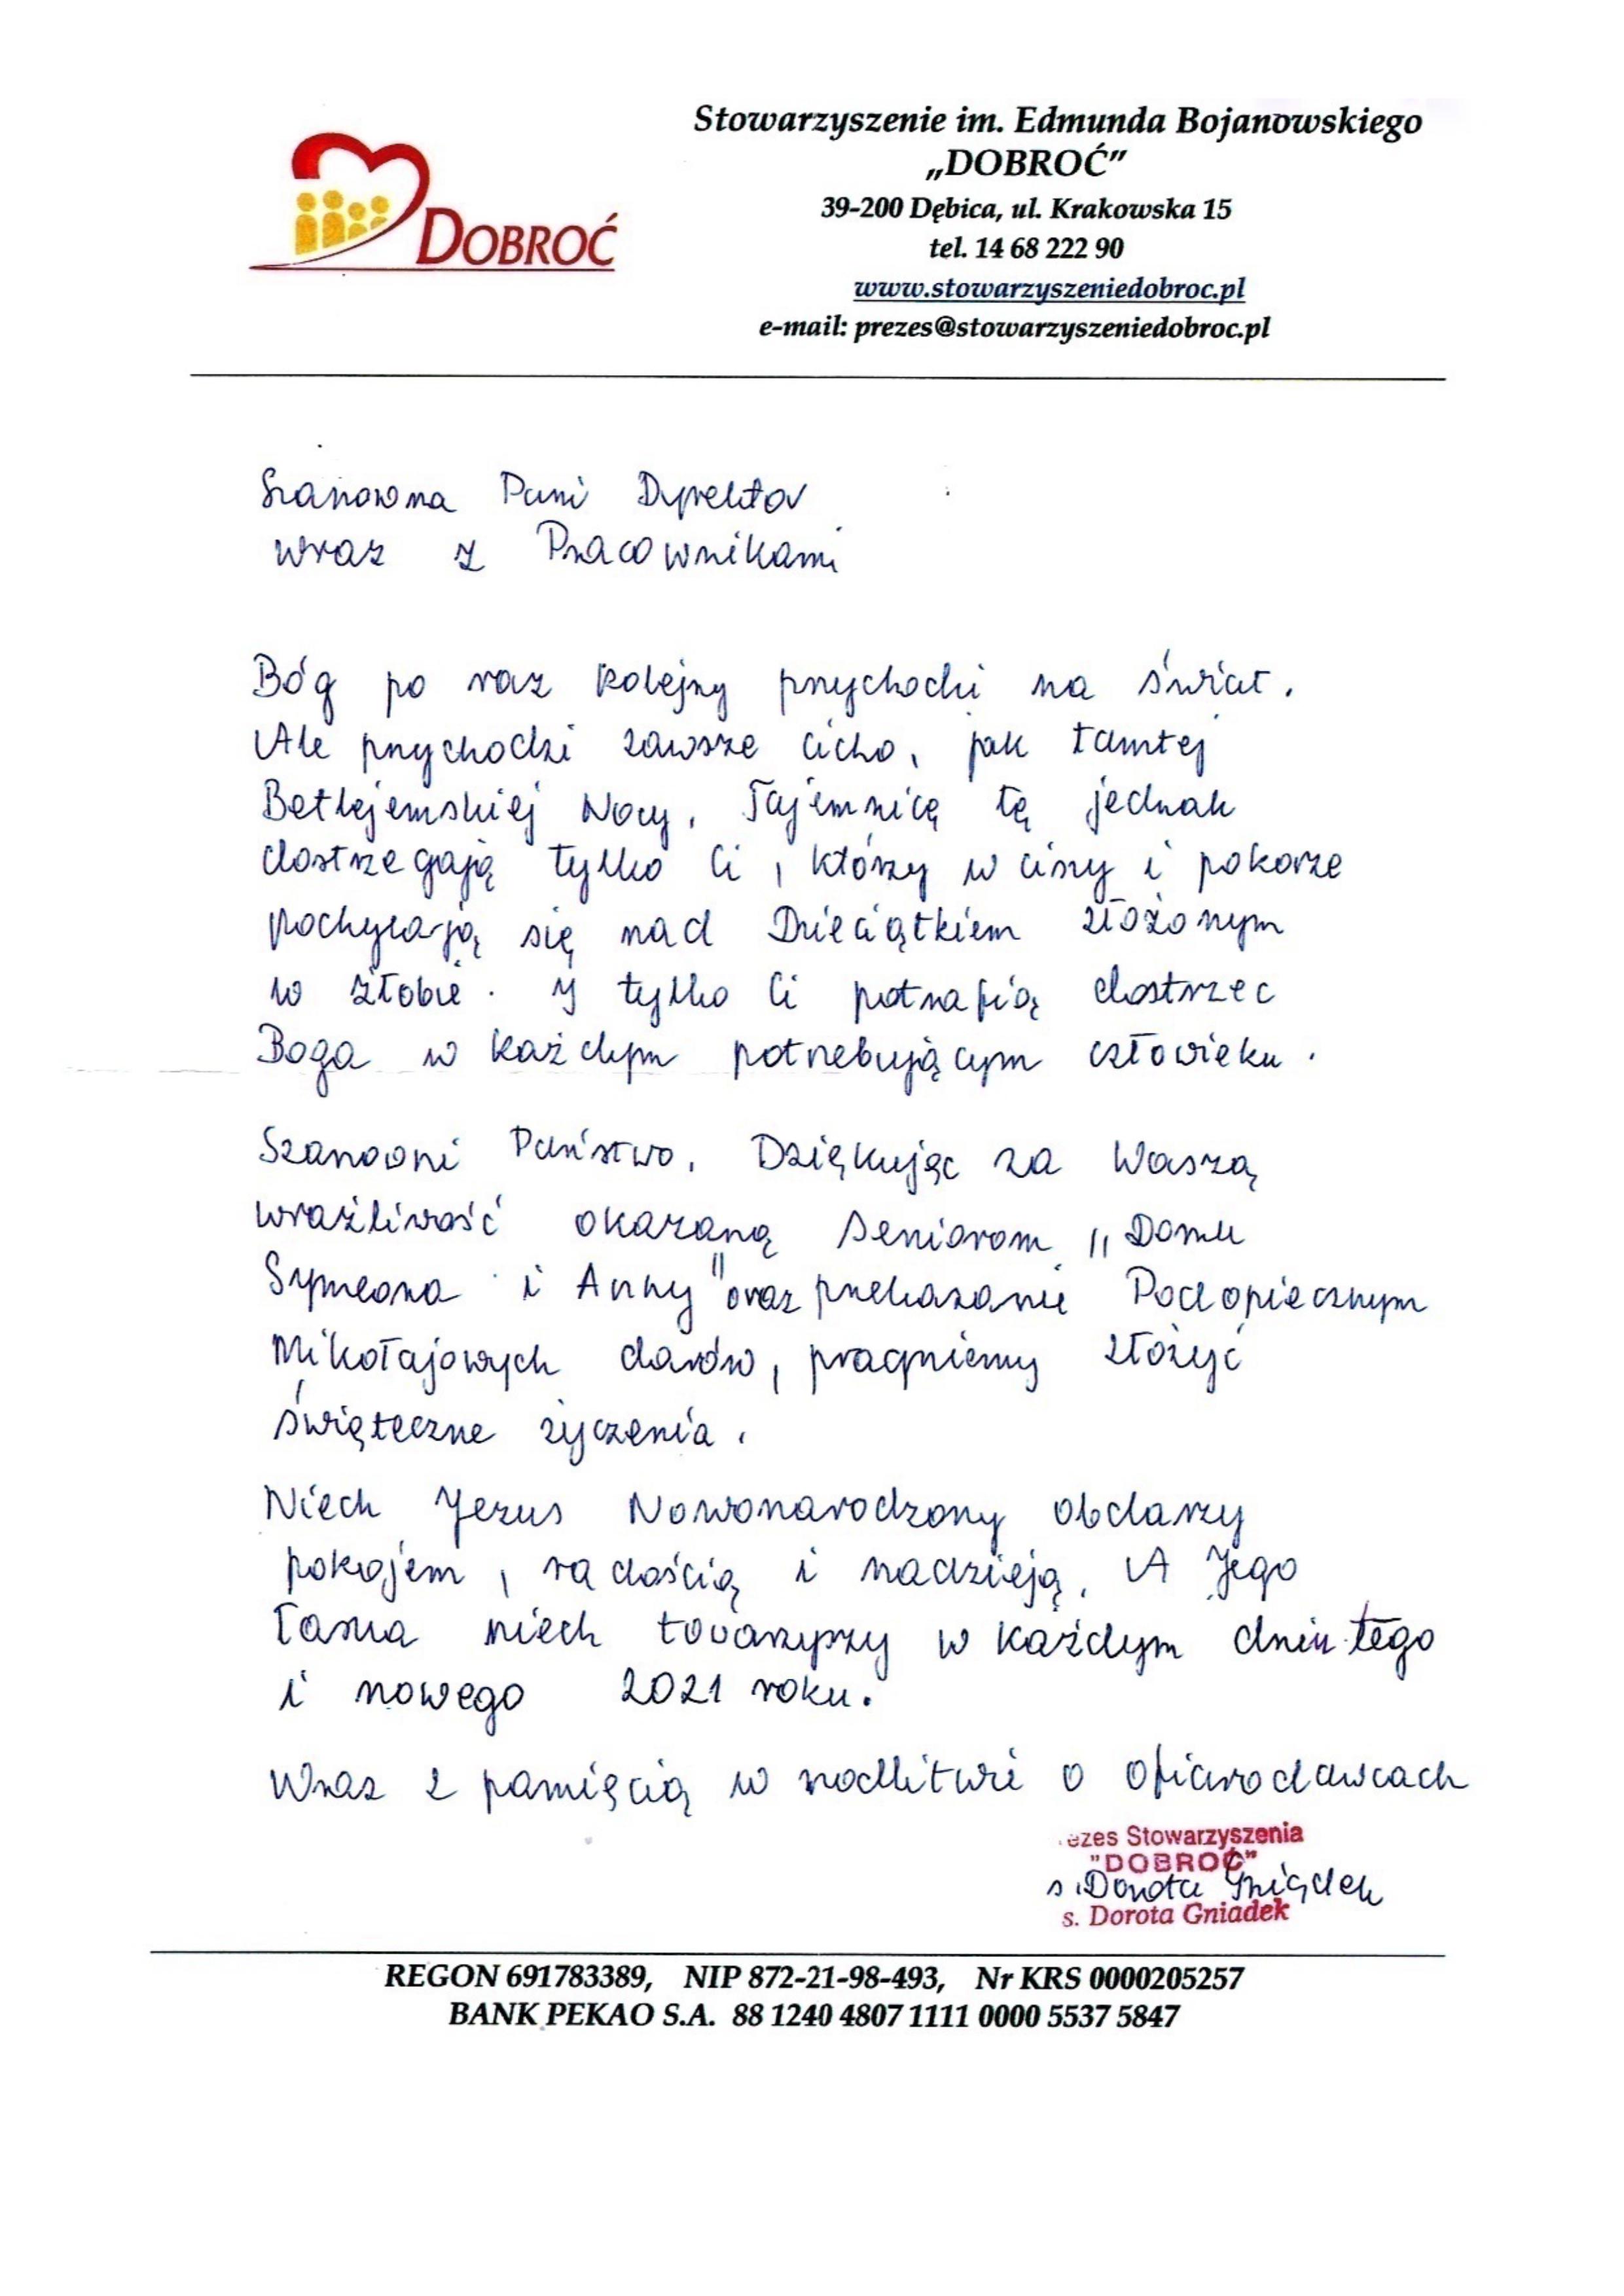 DOBROĆ
Stowarzyszenie im. Edmunda Bojanowskiego
„DOBROĆ”
39-200 Dębica, ul. Krakowska 15
tel. 14 68 222 90
www.stowarzyszeniedobroc.pl
e-mail: prezes@stowarzyszeniedobroc.pl
Szanowna Pani Dyrektor
wraz z Pracownikami
Bóg po raz kolejny przychodzi na świat.
Ale przychodzi zawsze cicho, jak tamtej
Betlejemskiej Nocy. Tajemnicę tę jednak
dostrzegają tylko Ci, którzy w ciszy i pokorze
pochylają się nad Dzieciątkiem złożonym
w żłobie. I tylko Ci potrafią dostrzec
Boga w każdym potrzebującym człowieku.
Szanowni Państwo. Dziękując za Waszą
wrażliwość okazaną seniorom „Domu
Symeona i Anny" oraz przekazanie Podopiecznym
Mikołajowych darów, pragniemy złożyć
świąteczne życzenia.
Niech Jezus Nowonarodzony obdarzy
pokojem, radością i nadzieją. A Jego
Łaska niech towarzyszy w każdym dniu tego
i nowego 2021 roku.
Wraz z pamięcią w modlitwie o ofiarodawcach
ezes Stowarzyszenia
"DOBROĆ"
s. Dorota Gniadek
s. Dorota Gniadek
REGON 691783389, NIP 872-21-98-493, Nr KRS 0000205257
BANK PEKAO S.A. 88 1240 4807 1111 0000 5537 5847